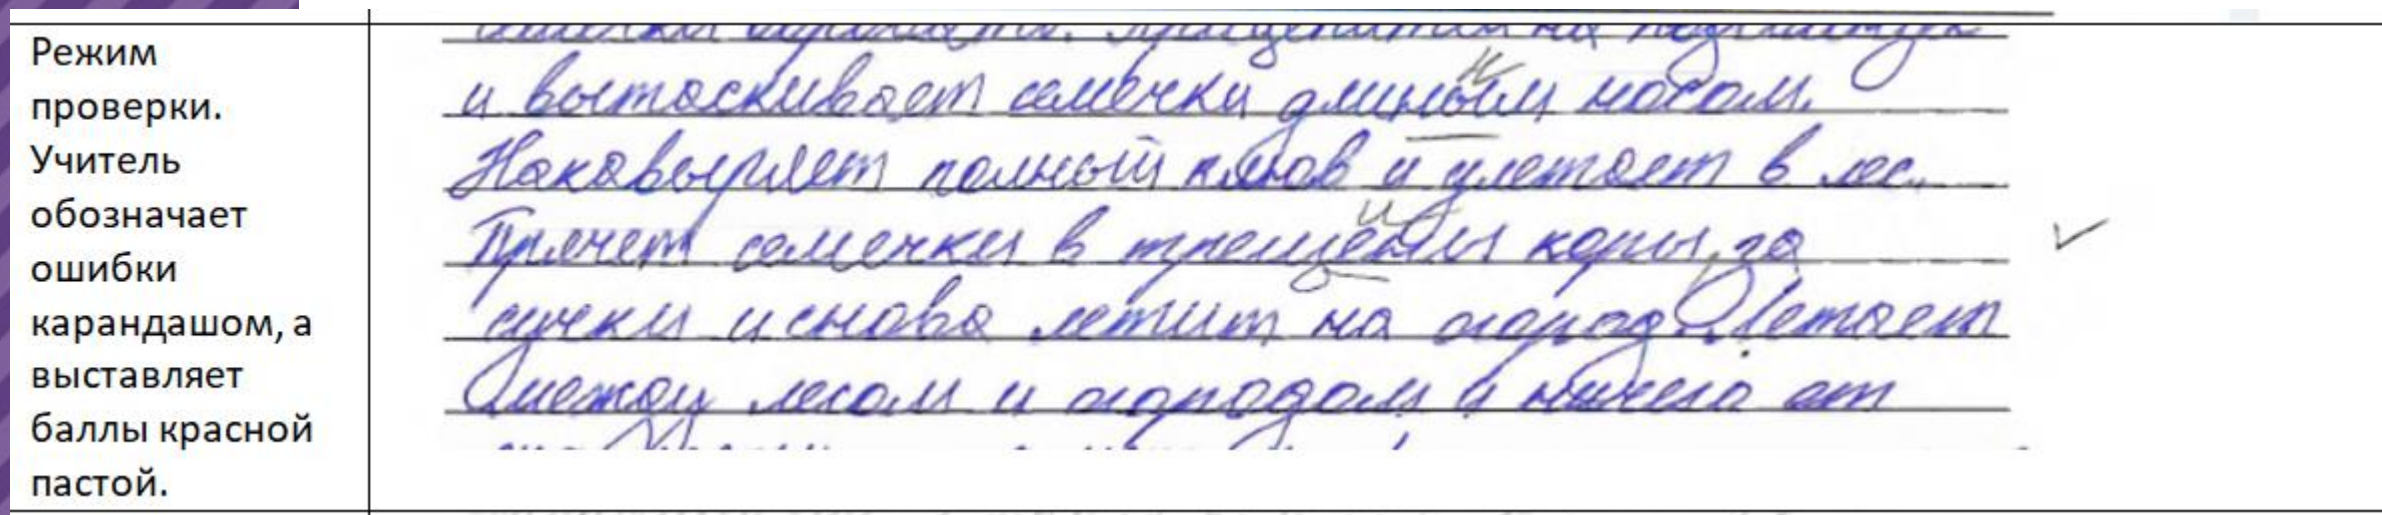 Режим
проверки.
Учитель
обозначает
ошибки
карандашом, а
выставляет
баллы красной
пастой.
и вытаскивает семечки длиным носом.
н
Наковыряет полный клюв и улетает в лес.
Прячет семечки в трещены коры, за
и
сучки и снова летит на огород. Летает
между лесом и огородом и ничего от